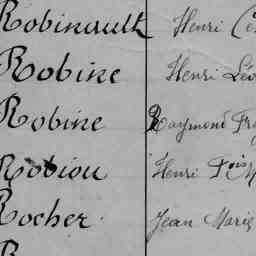 Robinault Henri
Robine Henri
Robine Raymond
Robiou Henri
Rocher Jean Marie